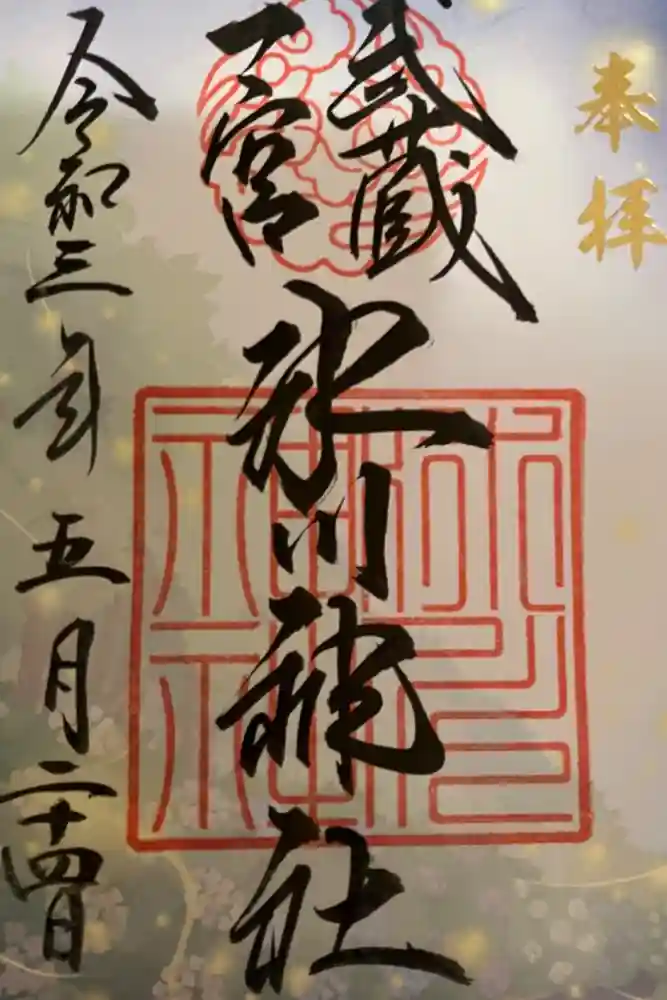 奉拝
武蔵
一宮
氷川神社
令和三年五月二十四日